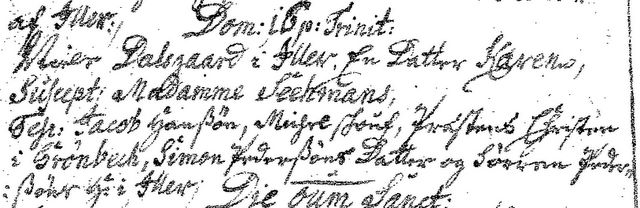 af Iller, Dom: 16 p: Trinit:
Nier Dalsgaard i Iller, En Datter Karen,
Suscept: Madamme Teekmans,
Test: Jacob Hansøn, Michel, Præstens Christen
i Grönbech, Simon Pedersöns Datter og Sörren Peder-
: i Iller, Die Sanct: